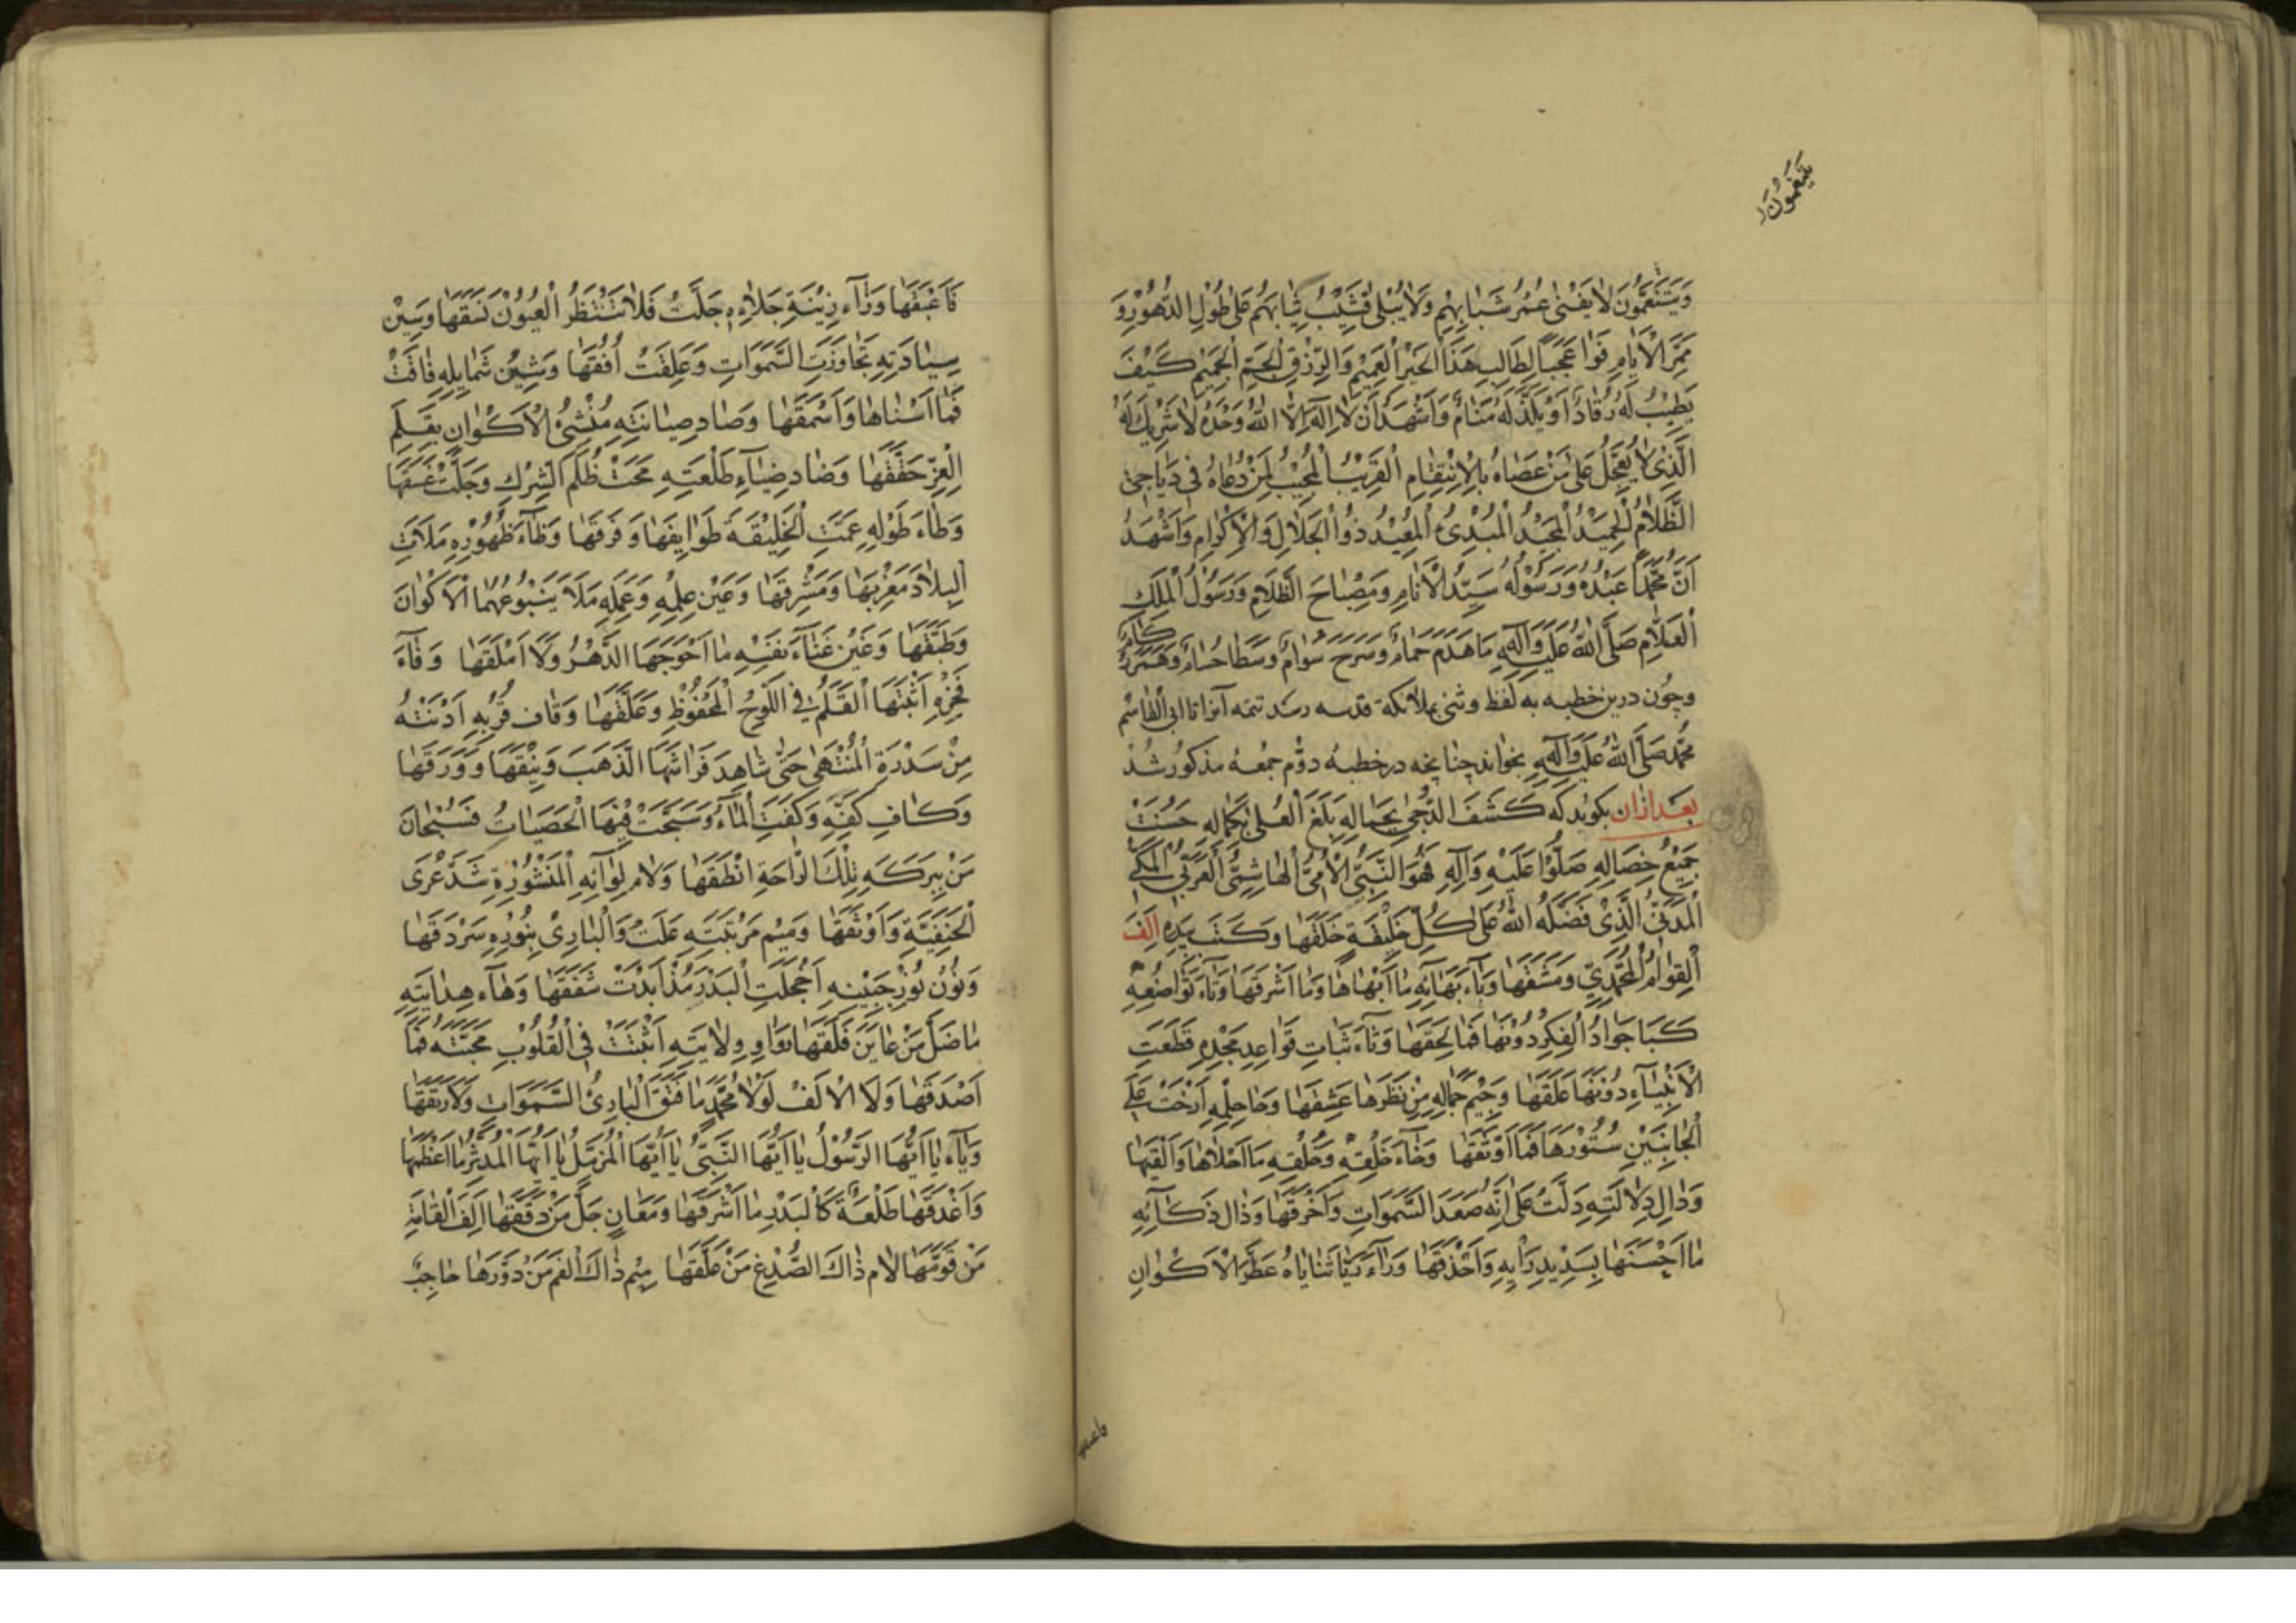 يَتَنَعَّمُونَ
وَيَتَنَعَّمُونَ لَا يَفْنى عُمُرُ شَبَابِهِمْ وَلَا يُبْلى قَشِيبُ ثِيَابِهِمْ عَلى طُولِ الدُّهُورِ وَ
مَمَرِّ الْأَيَّامِ فَوَا عَجَبًا لِطَالِبِ هَذَا الْخَيْرِ الْعَمِيمِ وَالرِّزْقِ الْجَمِّ الْجَمِيمِ كَيْفَ
يَطِيبُ لَهُ رُقَادٌ أَوْ يَلَذُّ لَهُ مَنَامٌ وَأَشْهَدُ أَنْ لَا إِلَهَ إِلَّا اللهُ وَحْدَهُ لَا شَرِيكَ لَهُ
الَّذِى لَا يُعَجِّلُ عَلى مَنْ عَصَاهُ بِالْإِنْتِقَامِ الْقَرِيبُ الْمُجِيبُ لِمَنْ دَعَاهُ فِى دَيَاجِى
الظَّلَامِ الْحَمِيدُ الْمَجِيدُ الْمُبْدِئُ الْمُعِيدُ ذُو الْجَلَالِ وَالْإِكْرَامِ وَأَشْهَدُ
أَنَّ مُحَمَّدًا عَبْدُهُ وَرَسُولُهُ سَيِّدُ الْأَنَامِ وَمِصْبَاحَ الظَّلَامِ وَرَسُولُ الْمَلِكِ
الْعَلَّامِ صَلَّى اللهُ عَلَيْهِ وَآلِهِ مَا هَدَمَ حَمَامٌ وَسَرَحَ سَوَامٌ وَسَطَا حُسَامٌ وَهَمَرَ رُكَامٌ
وچون درين خطبه به لفظ وثنى بملائكة قدسه رسد تتمه آنرا تا ابى القاسم
محمّد صَلَّى اللهُ عَلَيْهِ وَآلِهِ بخواند چنانچه در خطبهٔ دوّم جمعه مذكور شد
بعد ازان بكويد كه كَشَفَ الدُّجى بِجَمَالِهِ بَلَغَ الْعُلى بِكَمَالِهِ حَسُنَتْ
جَمِيعُ خِصَالِهِ صَلُّوا عَلَيْهِ وَآلِهِ فَهُوَ النَّبِىُّ الْأُمِّىُّ الْهَاشِمِىُّ الْعَرَبِىُّ الْمَكِّىُّ
الْمَدَنِىُّ الَّذِى فَضَّلَهُ اللهُ عَلى كُلِّ خَلِيقَةٍ خَلَقَهَا وَكَتَبَ بِيَدِهِ اَلِفَ
الْقِوَامِ الْمُحَمَّدِىِّ وَمَشَقَهَا وَبَاءَ بَهَائِهِ مَا أَبْهَاهَا وَمَا أَشْرَقَهَا وَتَاءَ تَوَاضُعِهِ
كَبَا جَوَادُ الْفِكْرِ دُونَهَا فَمَا لَحِقَهَا وَثَاءَ ثَبَاتِ قَوَاعِدِ مَجْدِهِ قَطَعَتِ
الْأَنْبِيَاءِ دُونَهَا عَلَقَهَا وَجِيمِ جَمَالِهِ مَنْ نَظَرَهَا عَشِقَهَا وَحَا حِلْمِهِ أَرْخَتْ عَلَى
الْجَانِبَيْنِ سُتُورَهَا فَمَا أَوْثَقَهَا وَخَاءَ خَلْقِهِ وَخُلْقِهِ مَا أَحْلَاهَا وَأَلْيَقَهَا
وَدَالِ دِلَالَتِهِ دَلَّتْ عَلى أَنَّهُ صَعَدَ السَّمَوَاتِ وَأَخْرَقَهَا وَذَالِ ذَكَائِهِ
مَا أَحْسَنَهَا بِسَدِيدِ رَأْيِهِ وَأَحْذَقَهَا وَرَاءَ رَيَّا ثَنَايَاهُ عَطَّرَ الْأَكْوَانِ
فَأَعْبَقَهَا وَزَاءِ زِينَةِ جَلَاءِهِ جَلَتْ فَلَا تَنْتَظِرُ الْعُيُونْ نَسَقَهَا وَسِينِ
سِيَادَتِهِ تَجَاوَزَتِ السَّمَوَاتِ وَعَلِقَتْ أُفُقَهَا وَشِينُ شَمَايِلِهِ فَاقَتْ
فَمَا أَسْنَاهَا وَأَسْمَقَهَا وَصَادِ صِيَانَتِهِ مُنْشِئُ الْأَكْوَانِ بِقَلَمِ
الْعِزِّ حَقَّقَهَا وَضَادِ ضِيَاءِ طَلْعَتِهِ مَحَتْ ظُلَمَ الشِّرْكِ وَجَلَتْ غَسَقَهَا
وَطَاءَ طَوْلِهِ عَمَّتِ الْخَلِيقَةَ طَوَايِفَهَا وَفِرَقَهَا وَظَاءَ ظُهُورِهِ مَلَأَتِ
الْبِلَادَ مَغْرِبَهَا وَمَشْرِقَهَا وَعَيْنِ عِلْمِهِ وَعَمَلِهِ مَلَأَ يَنْبُوعُهُمَا الْأَكْوَانَ
وَطَبَّقَهَا وَغَيْنَ غَنَاءَ نَفْسِهِ مَا أَحْوَجَهَا الدَّهْرُ وَلَا أَمْلَقَهَا وَفَاءَ
فَخْرِهِ أَثْبَتَهَا الْقَلَمُ فِى اللَّوْحِ الْمَحْفُوظِ وَعَلَّقَهَا وَقَافِ قُرْبِهِ أَدْنَتْهُ
مِنْ سَدْرَةِ الْمُنْتَهى حَتّى شَاهَدَ فَرَاشَهَا الذَّهَبَ وَنِبْقَهَا وَوَرَقَهَا
وَكَافِ كَفِّهِ وَكَفَتِ الْمَاءُ وَسَبَّحَتْ فِيهَا الْحَصَيَاتُ فَسُبْحَانَ
مَنْ بِبَرَكَهِ تِلْكَ الرَّاحَةِ انْطَقَهَا وَلَامِ لِوَائِهِ الْمَنْشُورَةِ شَدَّ عُرَى
الْحَنِفِيَّةِ وَأَوْثَقَهَا وَمِيْمِ مَرْتَبَتِهِ عَلَتْ وَالْبَارِىْ بِنُورِهِ سَرْدَقَهَا
وَنُونُ نُورِ جَبِينِهِ أَخْجَلَتِ الْبَدْرَ مُذْ أَبْدَتْ شَفَقَهَا وَهَاءِ هِدَايَتِهِ
مَا ضَلَّ مَنْ عَايَنَ فَلَقَهَا وَوَاوِ وِلَايَتِهِ أَثْبَتَتْ فِى الْقُلُوبِ مَحَبَّتَهُ فَمَا
أَصْدَقَهَا وَلَا الْأَلَفْ لَوْلَا مُحَمَّدٌ مَا فَتَقَ الْبَارِئُ السَّمَوَاتِ وَلَا رَتَقَهَا
وَيَاءِ يَا أَيُّهَا الرَّسُولُ يَا أَيُّهَا النَّبِىُّ يَا أَيُّهَا الْمُزَّمِّلُ يَا أَيُّهَا الْمُدَّثِّرُ مَا أَعْظَمَهَا
وَأَغْدَقَهَا طَلْعَةً كَالْبَدْرِ مَا أَشْرَقَهَا وَمَعَانٍ جَلَّ مَنْ دَقَّقَهَا اَلِفَ الْقَامَةِ
مَنْ قَوَّمَهَا لَامِ ذَاكَ الصُّدْغِ مَنْ عَلَّقَهَا مِيْمِ ذَاكَ الْفَمِ مَنْ دَوَّرَهَا حَاجِبٌ
فاعبقها